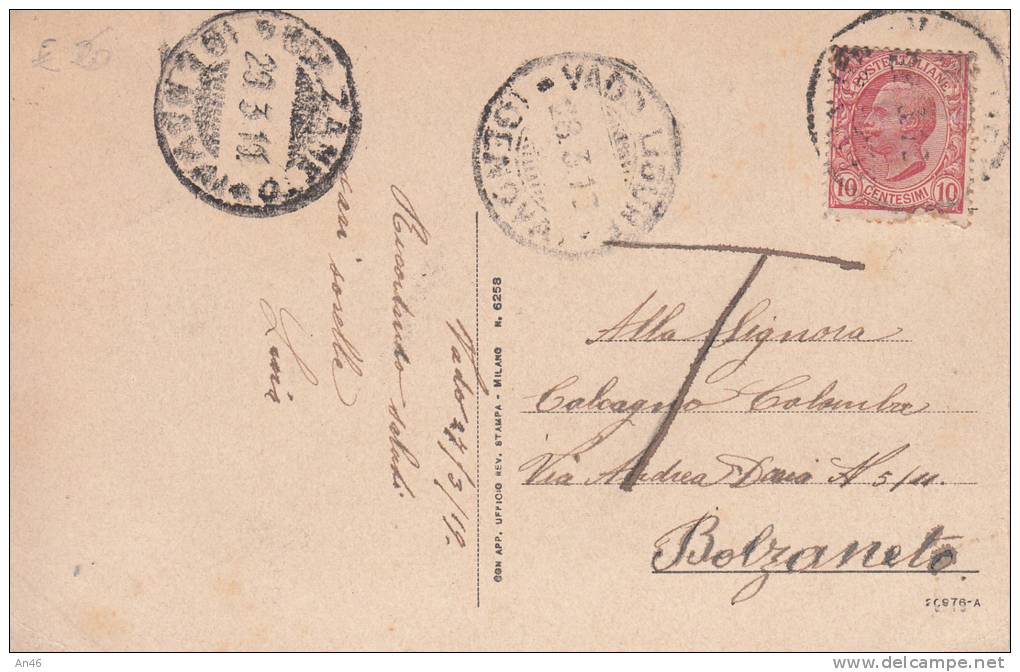 € 20
BOLZANETO
(GENOVA)
29.3.19
VADO LIGURE
(GENOVA)
28.3.19
POSTE ITALIANE
10 CENTESIMI 10
T
Vado 27/3/19.
Ricordando saluti
cari sorella
CON APP. UFFICIO REV. STAMPA - MILANO N. 6258
Alla Signora
Calcagno Colomba
Via Andrea Doria N 5/11.
Bolzaneto
20976-A
An46
www.delcampe.net